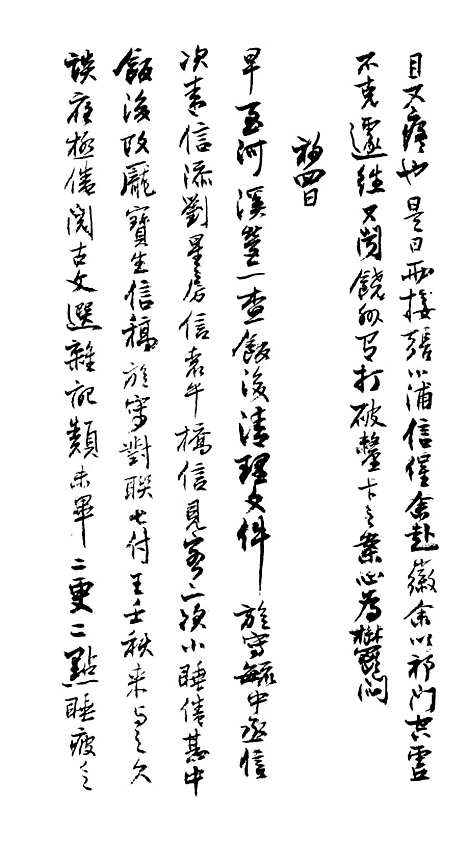 目又疼也是日兩接張小浦信催余赴徽余以祁門空虛
不克遽往又聞饒州局打破釐卡之案心為懊悶
初四日
早至河溪營一查飯後清理文件旋寫毓中丞信
次青信添劉星房信袁午橋信見客二次小睡倦甚中
飯後改龐寶生信稿旋寫對聯七付王壬秋來與之久
談夜極倦閱古文選雜記類未畢二更二點睡疲乏